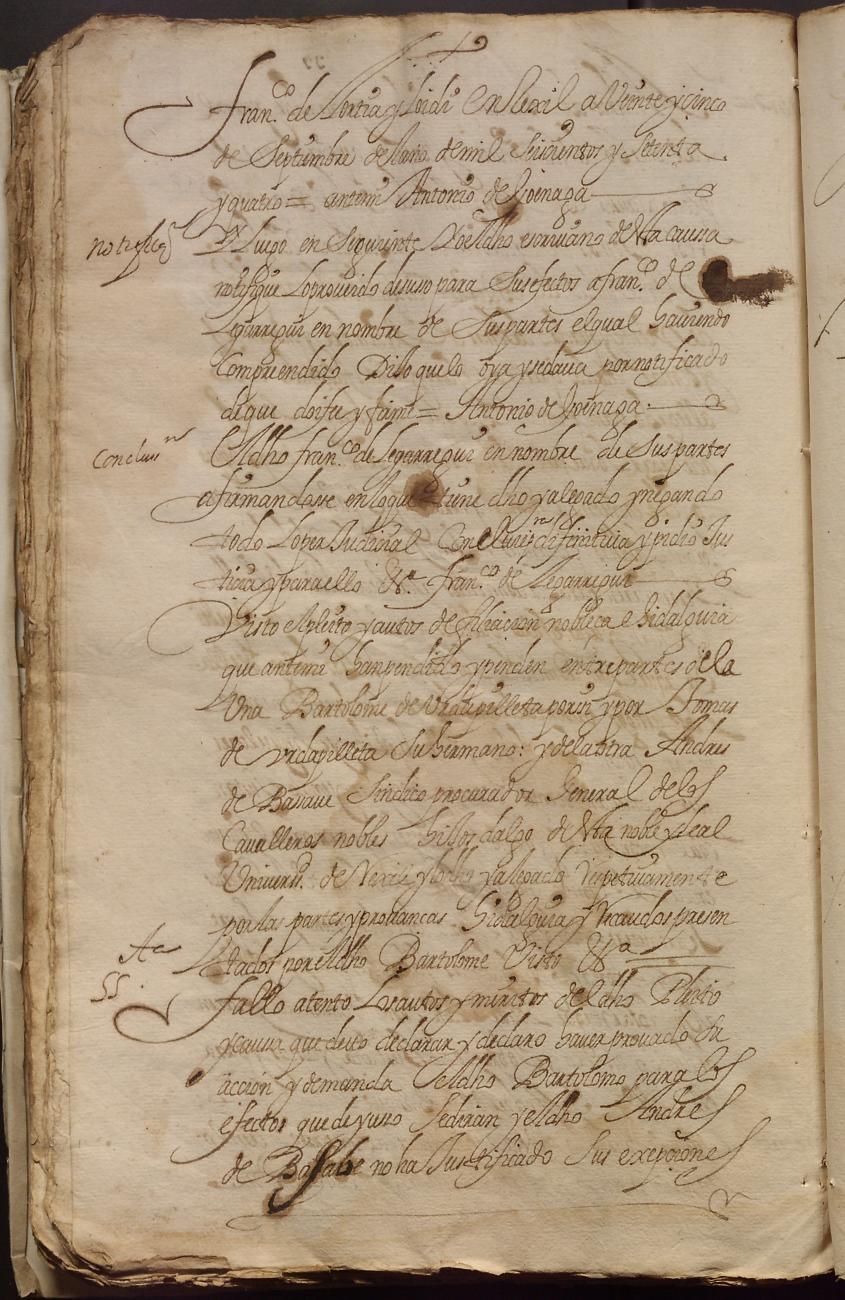 Fran.co de Lortia y Loidi En Lexil a Veinte y cinco
de Septiembre del año de mil Seicientos y Setenta
y quatro = antemi Antonio de Goenaga
notificaon
E luego en Siguiente Yo el dho escriuano desta causa
notifique Loproueido desuso para Sus efectos a fran.co de
Legarregui en nombre de Sus partes el qual hauiendo
Comprendido Dijo que lo oya y sedaua por notificado
de que doi fee y firme = Antonio de Goenaga
Conclusion
El dho fran.co de Legarregui en nombre de Sus partes
afirmandosse en loque tiene dho y alegado y negando
todo Loperjudicial Concluie definitiua y pidio Jus
ticia y para ello &a. Fran.co de Legarregui
Visto el pleito y autos de filiacion nobleça e hidalguia
que antemi han pendido y penden entre partes dela
Una Bartolome de Urdapilleta por si y por Tomas
de urdapilleta Su hermano: y dela otra Andres
de Bassaue Sindico procurador General delos
Caualleros nobles hijos dalgo desta noble y leal
Uniuersd. de y lo dho y alegado respetiuamente
por las partes y prouancas hidalguia y recaudos presen
tados por el dho Bartolome Visto &a
SS.
fallo atento Los autos y meritos del dho Pleito
y causa que deuo declarar y declaro hauer prouado su
acción y demanda el dho Bartolome para los
efectos que de yuso Sediran y el dho Andres
de Bassabe no ha Justificado Sus exepciones